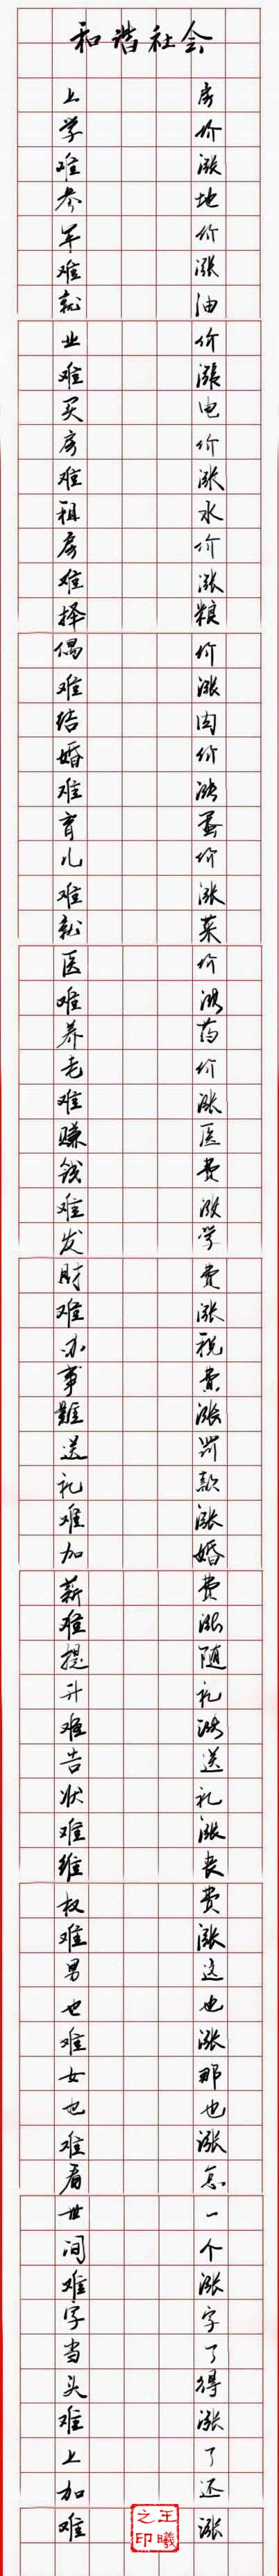 和谐社会
房价涨地价涨油价涨电价涨水价涨粮价涨肉价涨蛋价涨菜价涨药价涨医费涨学费涨税费涨罚款涨婚费涨随礼涨送礼涨丧费涨这也涨那也涨怎一个涨字了得涨了还涨
上学难参军难就业难买房难租房难择偶难结婚难育儿难就医难养老难赚钱难发财难办事難送礼难加薪难提升难告状难维权难男也难女也难看世间难字当头难上加难
王曦之印